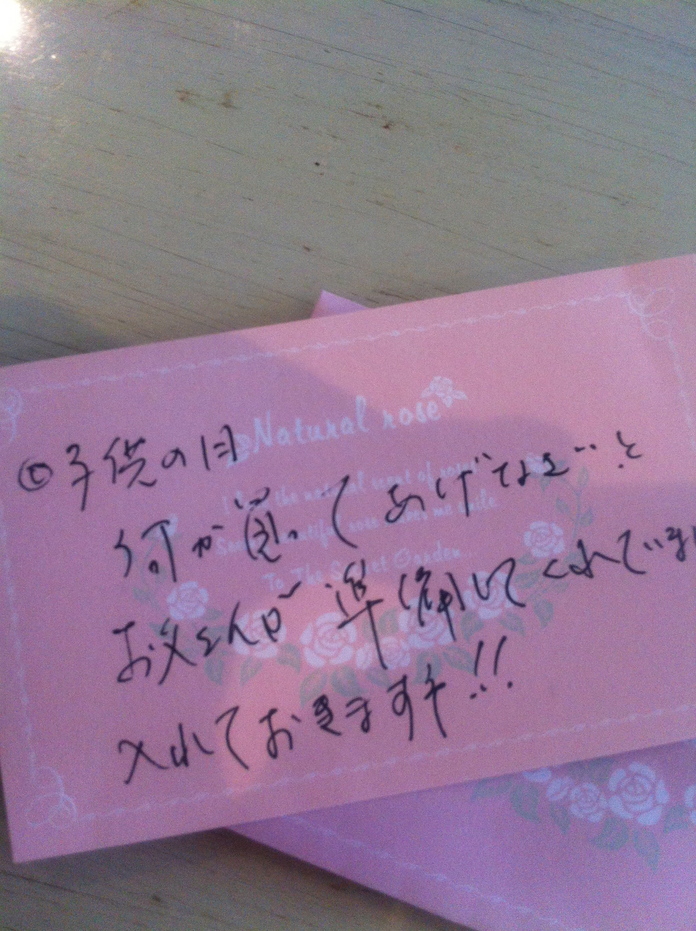 Natural rose
◎子供の日
the natural scent of
何か買ってあげなさいと
beautiful rose me smile
To The Secret Garden...
お父さんが準備してくれていま
入れておきますネ!!